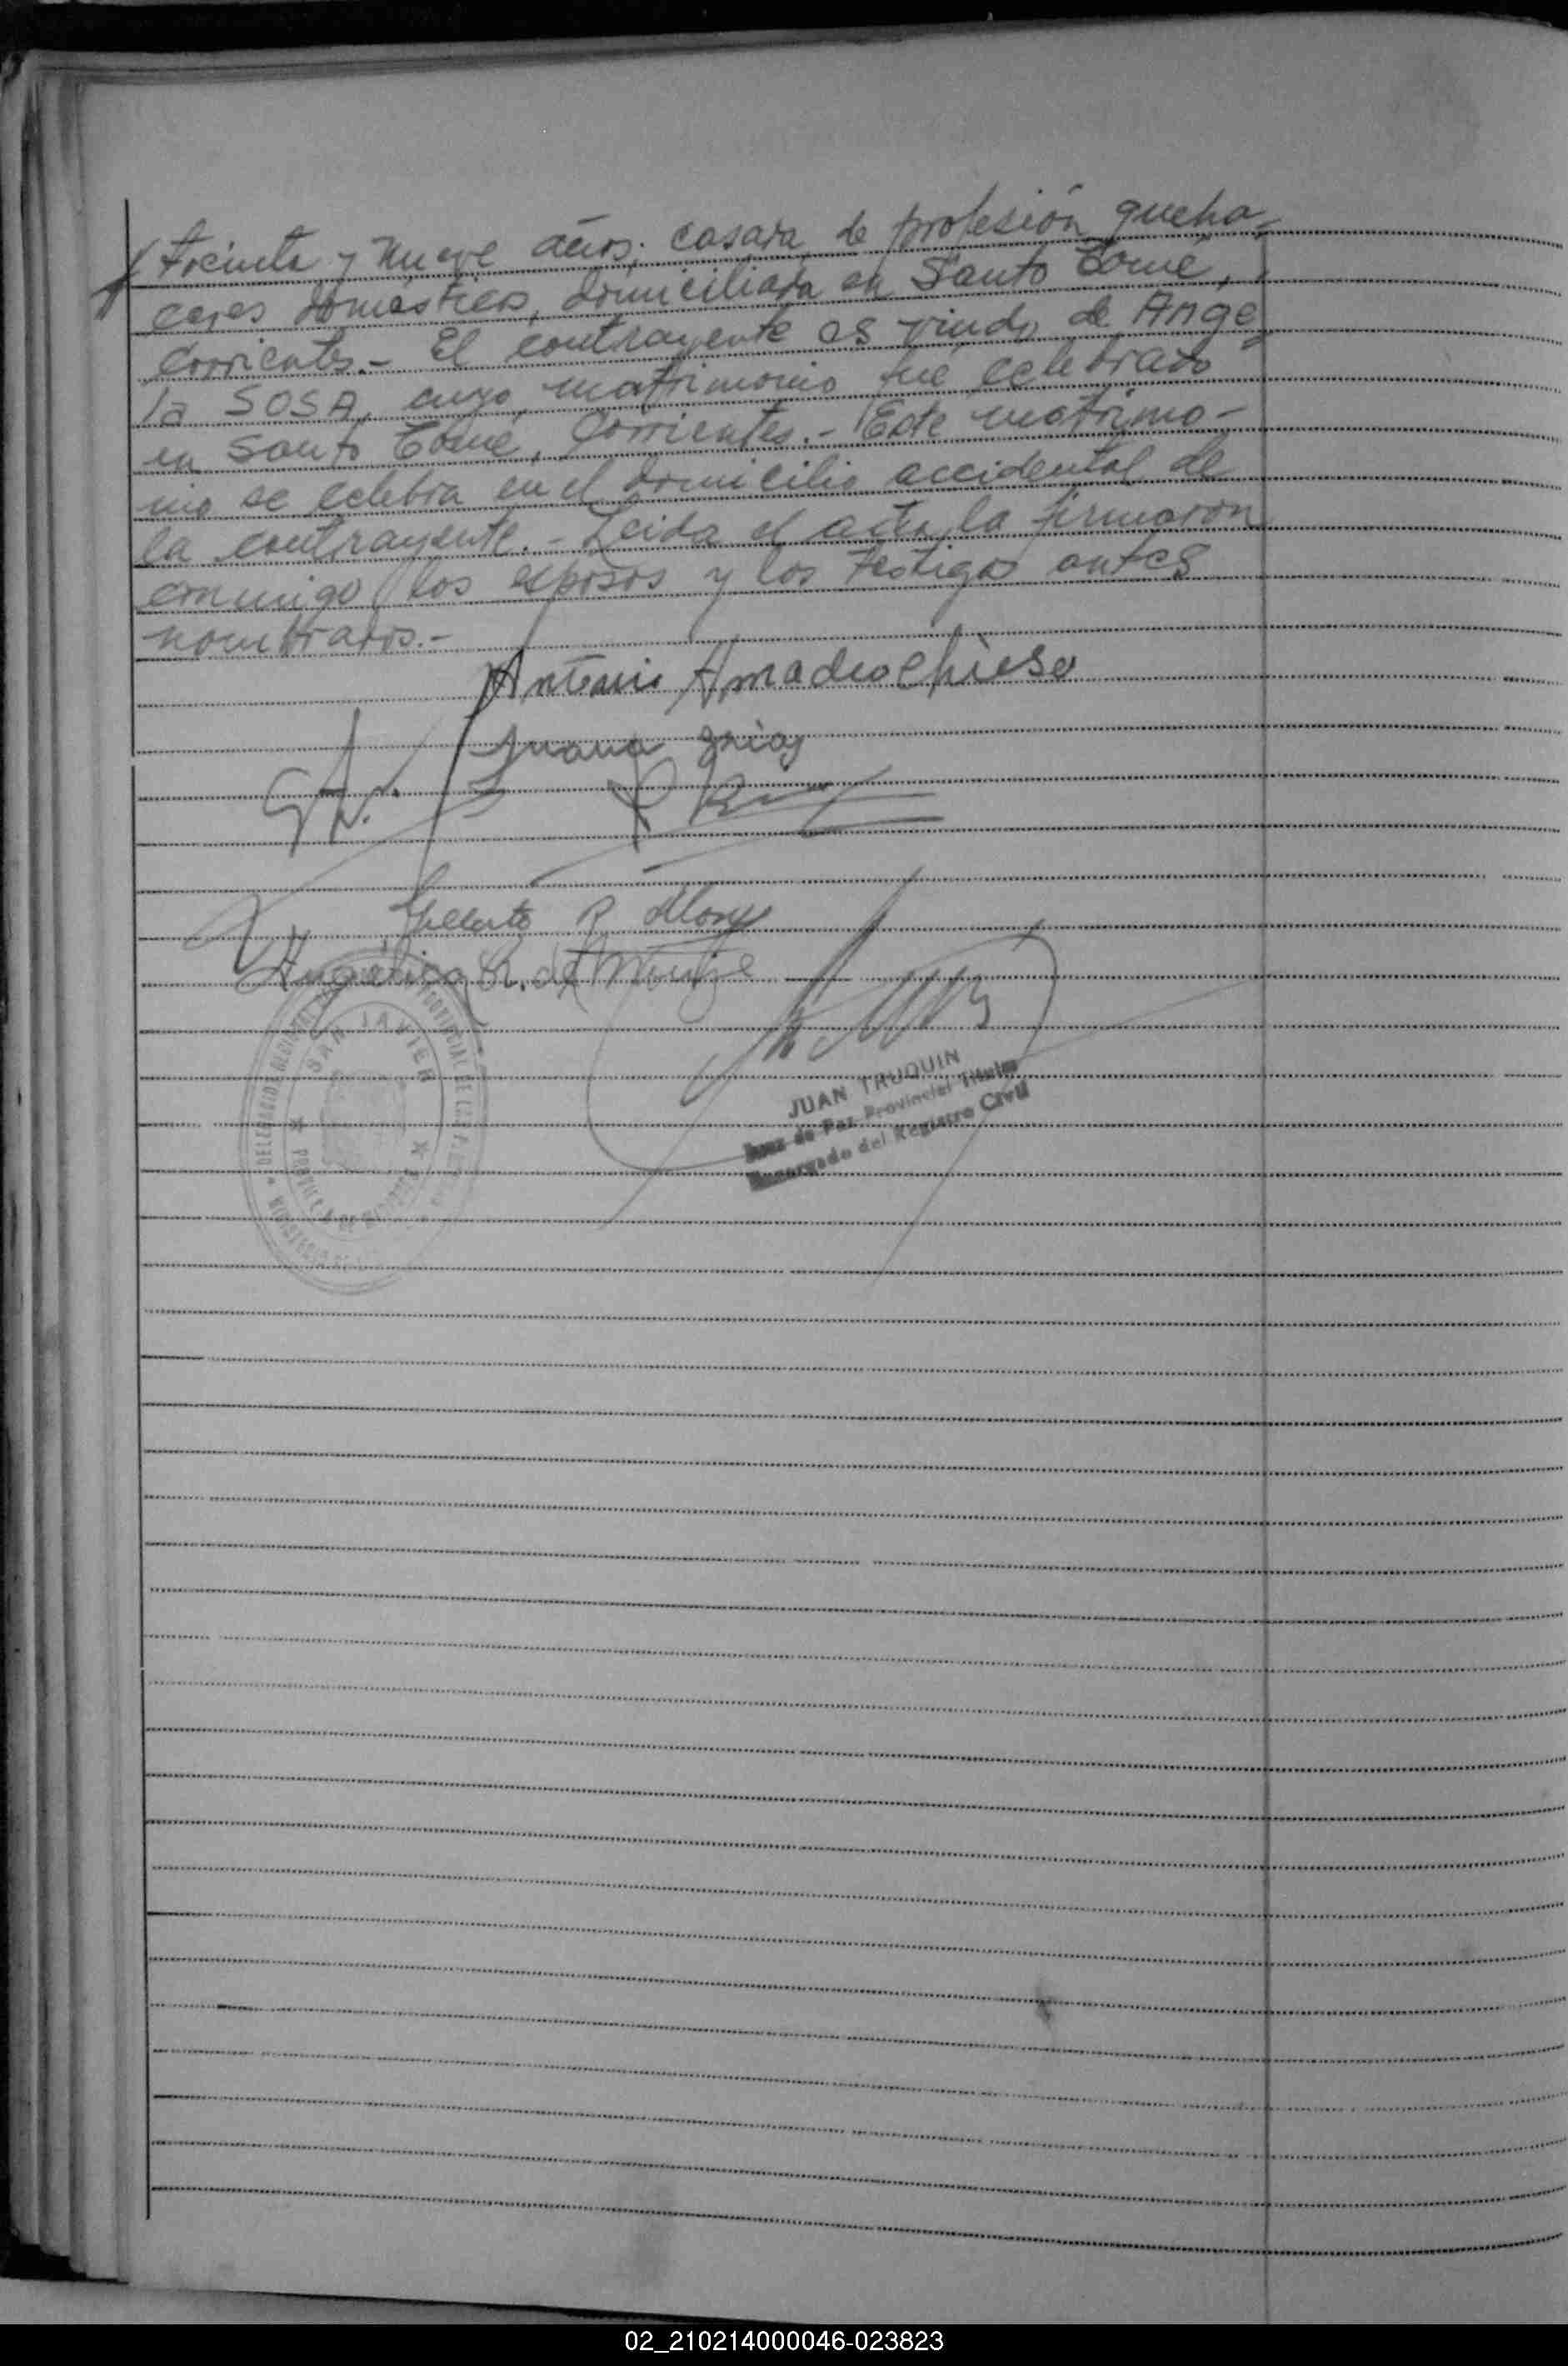 treinta y nueve años, casada, de profesión queha-
ceres domésticos, domiciliada en Santo Tomé,
Corrientes.- El contrayente es viudo de Ange
la SOSA, cuyo matrimonio fue celebrado
en Santo Tomé, Corrientes.- Este matrimo-
nio se celebra en el domicilio accidental de
la contrayente.- Leida el acta, la firmaron
conmigo los esposos y los testigos antes
nombrados.-
Antonio Amadeo Chiesa
Juana
R.
Angelica de
SAN JAVIER
PROVINCIA DE
JUAN TRUQUIN
Juez de Paz Provincial Titular
Encargado del Registro Civil
02_210214000046-023823